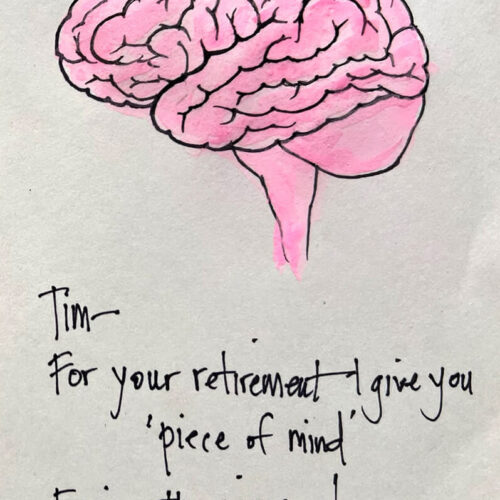 Tim-
For your retirement I give you
'piece of mind'